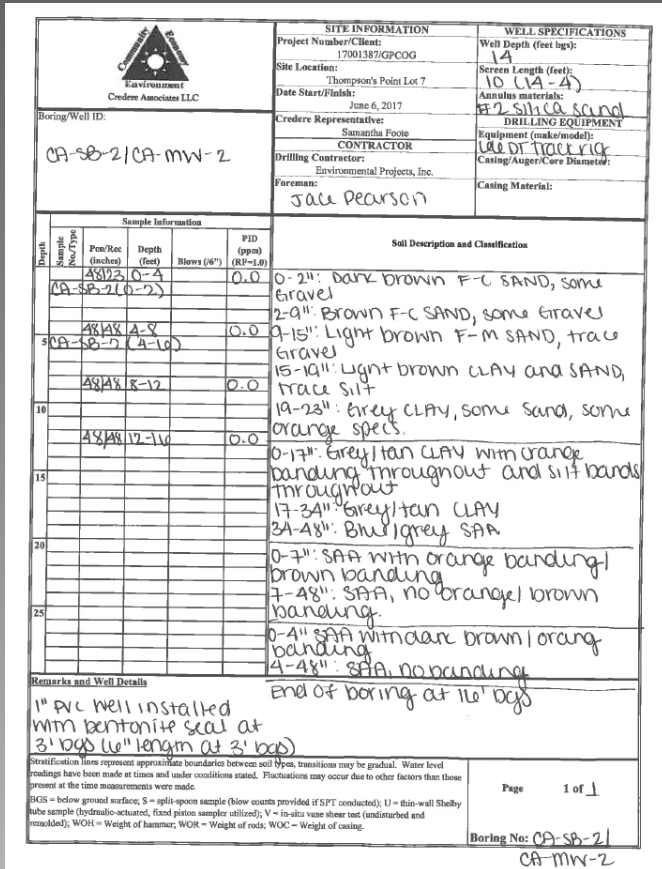 Community
Economy
Environment
Credere Associates LLC
Boring/Well ID:
CA-SB-2/CA-MW-2
SITE INFORMATION
Project Number/Client:
17001387/GPCOG
Site Location:
Thompson's Point Lot 7
Date Start/Finish:
June 6, 2017
Credere Representative:
Samantha Foote
CONTRACTOR
Drilling Contractor:
Environmental Projects, Inc.
Foreman:
Jace Pearson
WELL SPECIFICATIONS
Well Depth (feet bgs):
14
Screen Length (feet):
10 (14-4)
Annulus materials:
#2 Silica Sand
DRILLING EQUIPMENT
Equipment (make/model):
DT track rig
Casing/Auger/Core Diameter:
Casing Material:
Sample Information
Depth
Sample No./Type
Pen/Rec (inches)
Depth (feet)
Blows (/6")
PID (ppm) (RF=1.0)
Soil Description and Classification
48/23 0-4 0.0
CA-SB-2(0-2)
48/48 4-8 0.0
5 CA-SB-2 (4-6)
48/48 8-12 0.0
10
48/48 12-16 0.0
15
20
25
0-2": Dark brown F-C SAND, some
Gravel
2-9": Brown F-C SAND, some Gravel
9-15": Light brown F-M SAND, trace
Gravel
15-19": Light brown CLAY and SAND,
trace Silt
19-23": Grey CLAY, some Sand, some
orange specs.
0-17": Grey/tan CLAY with orange
banding throughout and silt bands
throughout
17-34": Grey/tan CLAY
34-48": Blue/grey SAA
0-7": SAA with orange banding/
brown banding
7-48": SAA, no orange/brown
banding.
0-4" SAA with dark brown/orang
banding
4-48": SAA, no banding
End of boring at 16' bgs
Remarks and Well Details
1" PVC well installed
with bentonite seal at
3' bgs (6" length at 3' bgs)
Stratification lines represent approximate boundaries between soil types, transitions may be gradual. Water level
readings have been made at times and under conditions stated. Fluctuations may occur due to other factors than those
present at the time measurements were made.
BGS = below ground surface; S = split-spoon sample (blow counts provided if SPT conducted); U = thin-wall Shelby
tube sample (hydraulic-actuated, fixed piston sampler utilized); V = in-situ vane shear test (undisturbed and
remolded); WOH = Weight of hammer; WOR = Weight of rods; WOC = Weight of casing.
Page 1 of 1
Boring No: CA-SB-2/
CA-MW-2